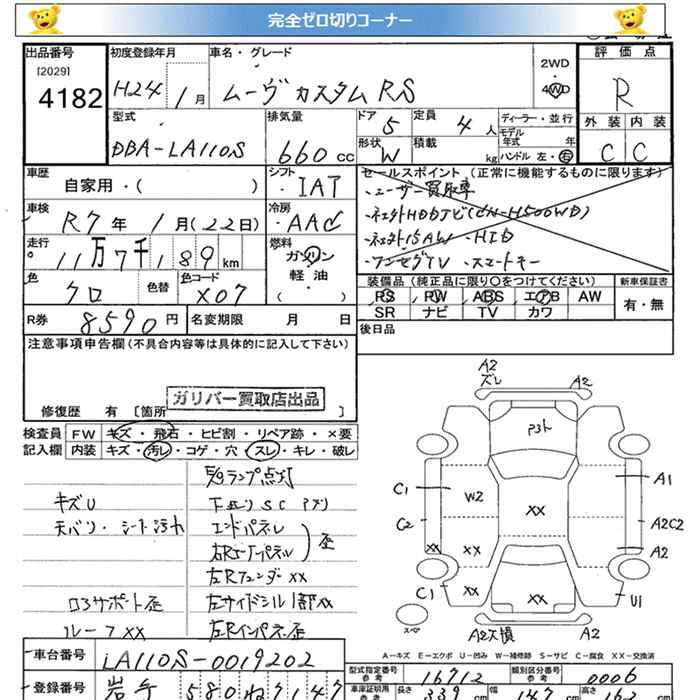 完全ゼロ切りコーナー
出品番号 初度登録年月 車名・グレード 2WD 評価点
[2029] H24 1月 ムーヴカスタム RS 4WD R
4182
型式 排気量 ドア 5 定員 4人 ディーラー・並行 外装 内装
モデル年式 年
DBA-LA110S 660cc 形状 W 積載 kg ハンドル 左・右 C C
車歴 シフト セールスポイント (正常に機能するものに限ります)
自家用・( ) ・IAT ・ユーザー買取車
車検 冷房 ・社外HDDナビ(CN-H500WD)
R7年1月(22日) ・AAC ・社外15AW ・HID
走行 燃料 ・ワンセグTV ・スマートキー
11万7千189km ガソリン
軽・油
( )
色 色替 色コード 装備品(純正品に限り○をつけてください) 新車保証書
クロ X07 PS PW ABS エアB AW 有・無
SR ナビ TV カワ
R券 8590円 名変期限 月 日 後日品
注意事項申告欄(不具合内容等は具体的に記入して下さい)
ガリバー買取店出品
修復歴 有 [箇所 ]
検査員 FW キズ・飛石・ヒビ割・リペア跡・×要
記入欄 内装 キズ・汚レ・コゲ・穴・スレ・キレ・破レ
キズU
天バリ・シート汚れ
エンドパネル
歪
左Rフェンダーxx
コアサポート歪
左サイドシル1部xx
ルーフxx
左Rインパネ歪
A2 ズレ A2
P3ト
C1 W2 XX A1
C2 A2C2
XX XX A2
C1 XX XX U1
スペア
A2ス損 A2
A-キズ E-エクボ U-凹み W-補修跡 S-サビ C-腐食 XX-交換済
車台番号 LA110S-0019202
型式指定番号 参考 16712 類別区分番号 参考 0006
登録番号 岩手 580 ね7147
車庫証明用 参考 長さ 339cm 幅 147cm 高さ